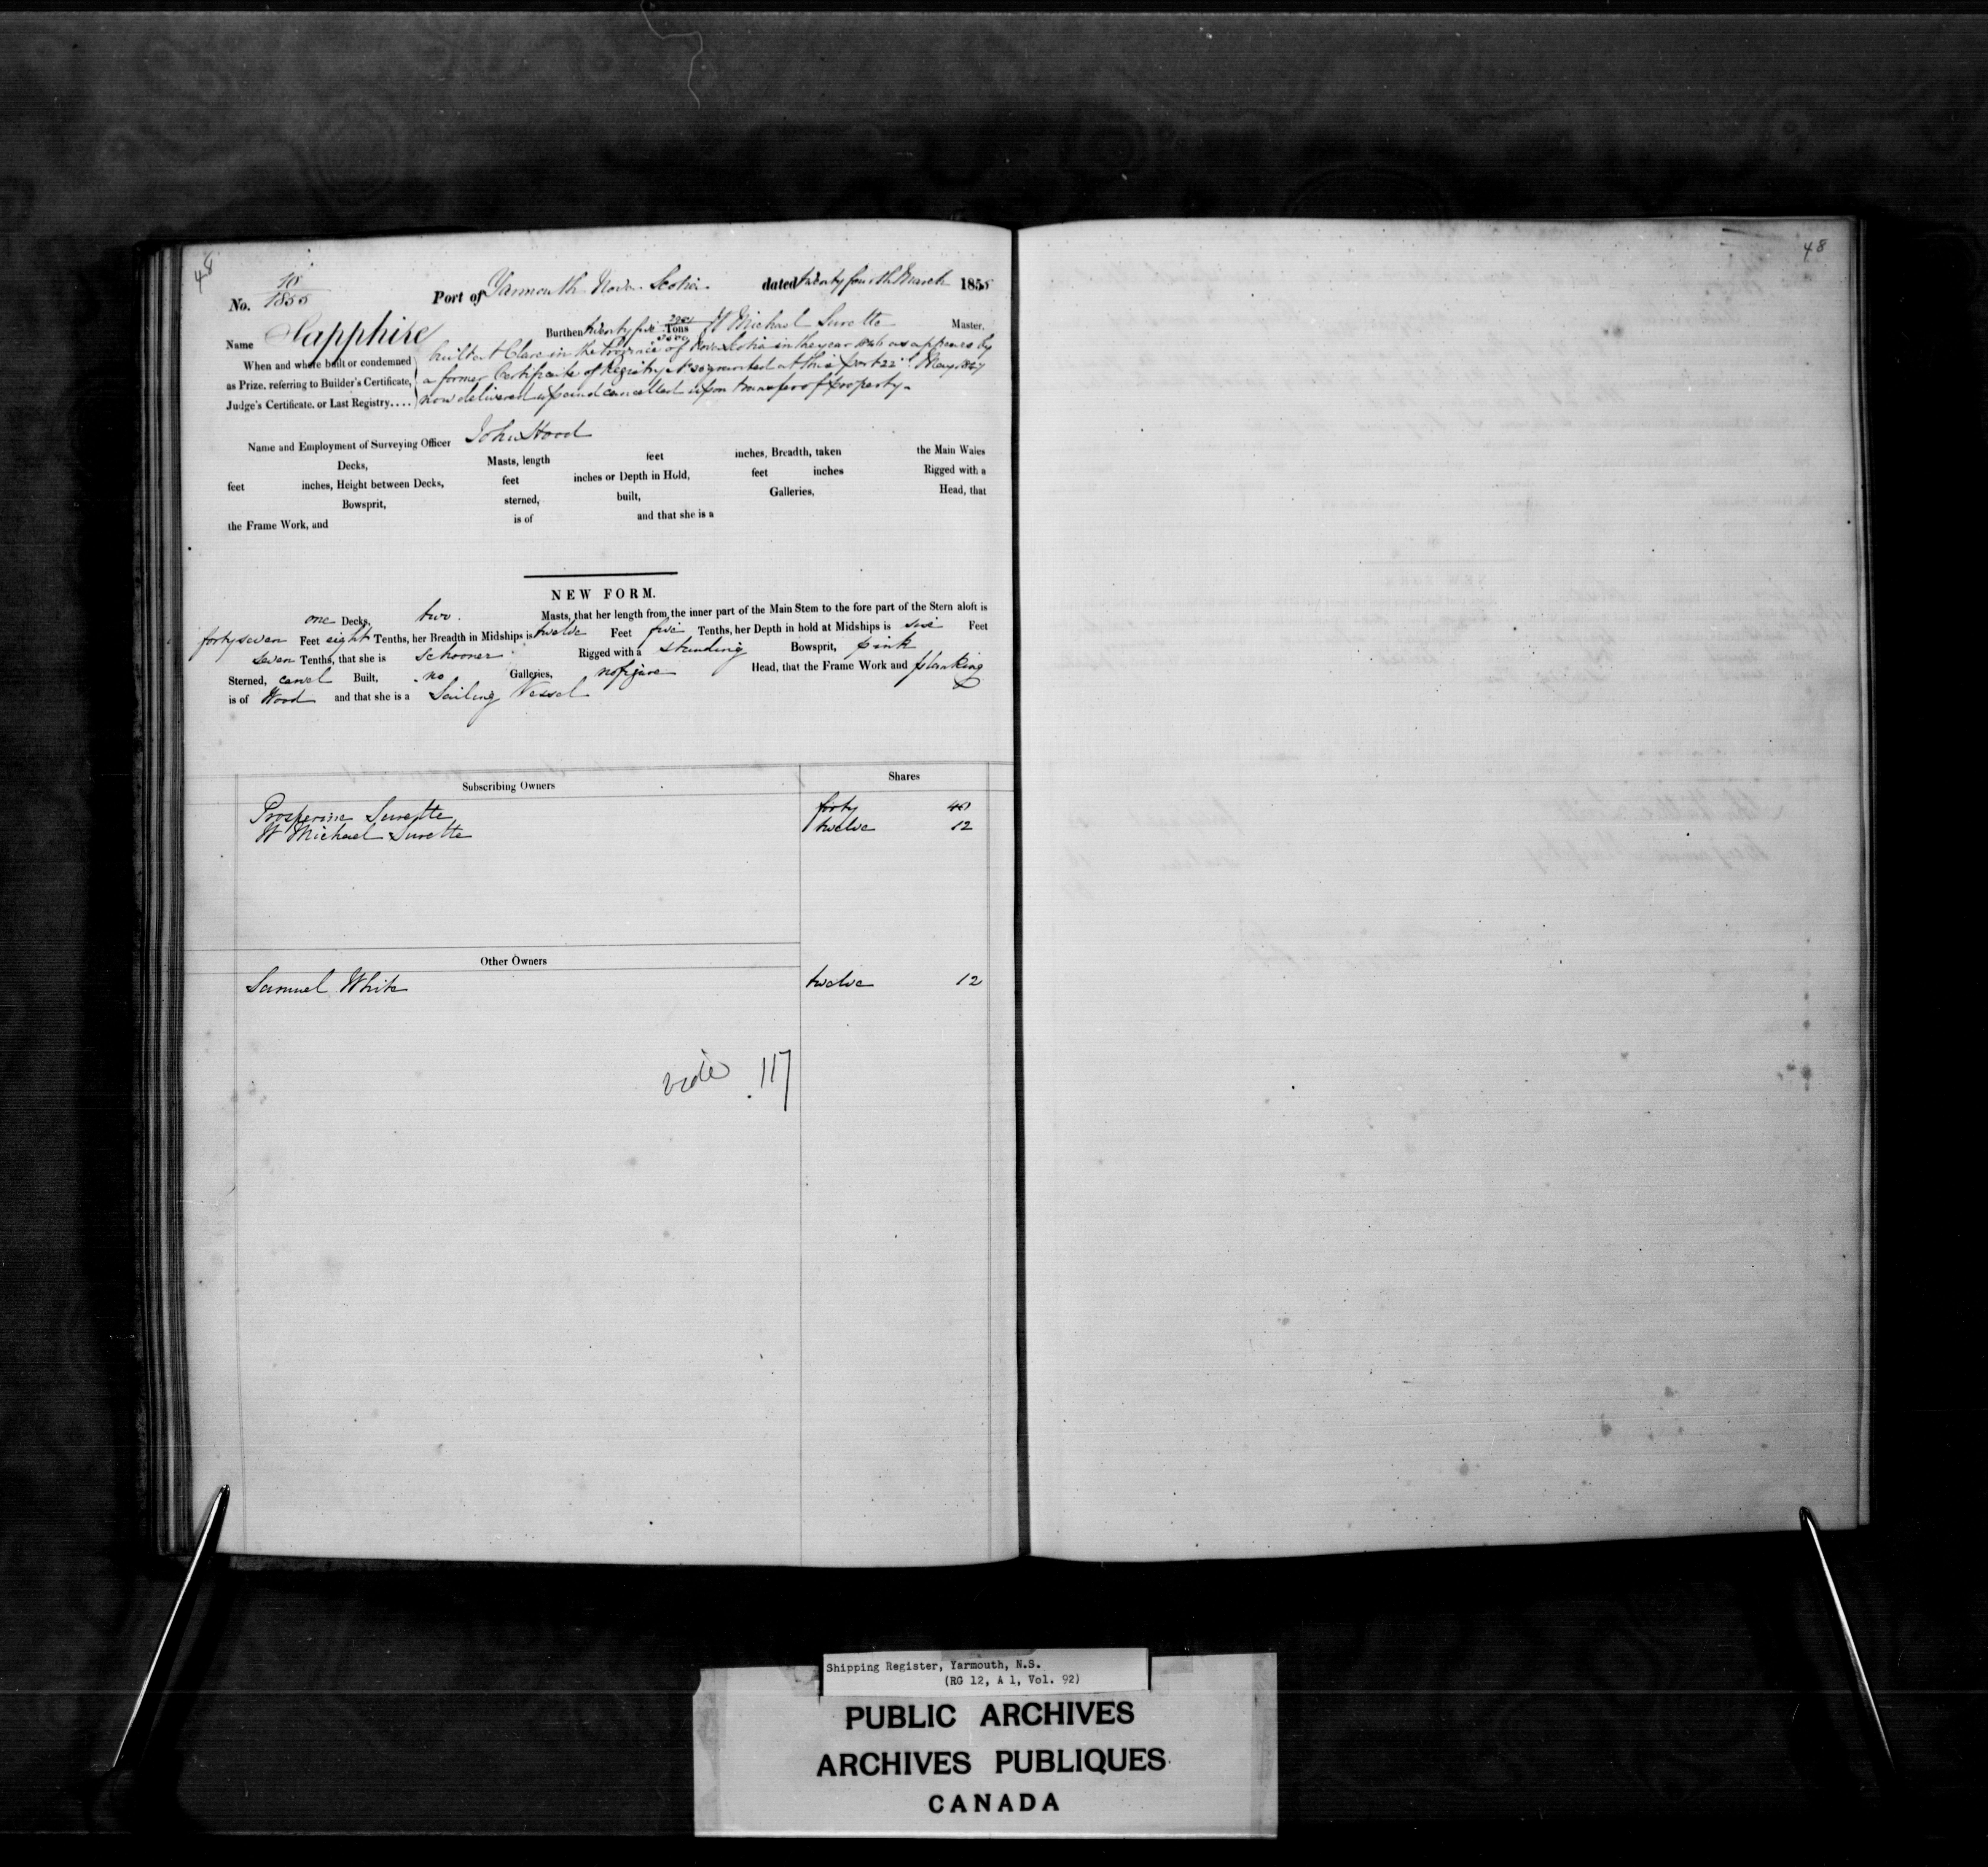 48
48
No. 10/1855 Port of Yarmouth Nova Scotia dated twenty fourth March 1855
Name Sapphire Burthen twenty five Tons W Michael Surette Master.
When and where built or condemned
as Prize, referring to Builder's Certificate,
Judge's Certificate, or Last Registry....
built at Clare in the Province of Nova Scotia in the year 1846 as appears by
a former Certificate of Registry No granted at this port 22d May 1847
now delivered up and cancelled upon transfer of property.
Name and Employment of Surveying Officer John Hood
Decks, Masts, length feet inches, Breadth, taken the Main Wales
feet inches, Height between Decks, feet inches or Depth in Hold, feet inches Rigged with a
Bowsprit, sterned, built, Galleries, Head, that
the Frame Work, and is of and that she is a
NEW FORM.
one Decks, two Masts, that her length from the inner part of the Main Stem to the fore part of the Stern aloft is
forty seven Feet eight Tenths, her Breadth in Midships is twelve Feet five Tenths, her Depth in hold at Midships is six Feet
seven Tenths, that she is schooner Rigged with a Standing Bowsprit, pink
Sterned, carvel Built, no Galleries, no figure Head, that the Frame Work and planking
is of Wood and that she is a Sailing Vessel
Subscribing Owners Shares
Surette forty 40
W Michael Surette twelve 12
Other Owners
Samuel White twelve 12
vide 117
Shipping Register, Yarmouth, N.S.
(RG 12, A 1, Vol. 92)
PUBLIC ARCHIVES
ARCHIVES PUBLIQUES
CANADA